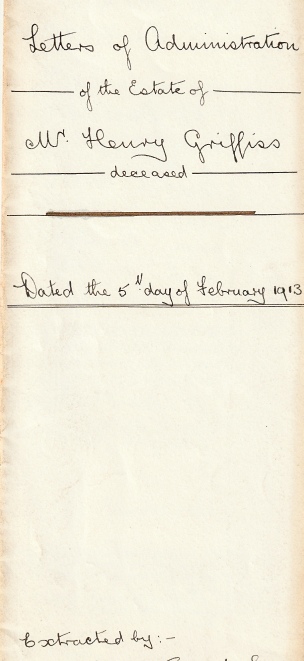 Letters of Administration
of the Estate of
Mr. Henry Griffiss
deceased
Dated the 5th day of February 1913
Extracted by:-